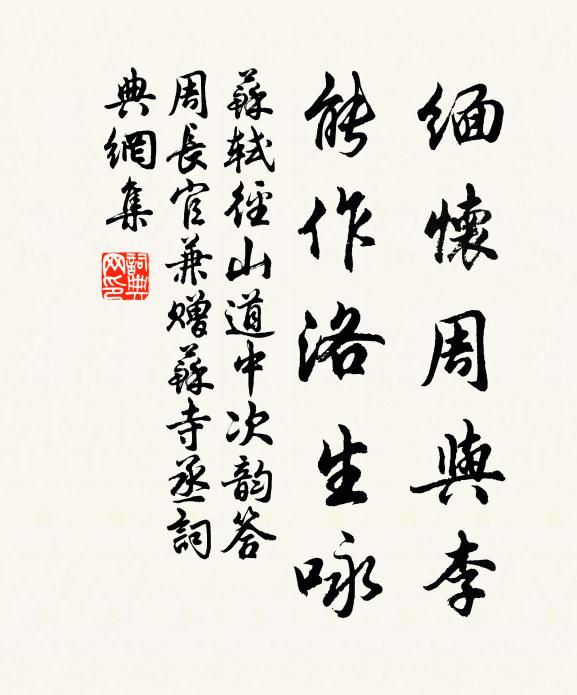 緬懷周與李
能作洛生咏
蘇軾徑山道中次韵答
周長官兼贈蘇寺丞詞
典網集
詞典网印